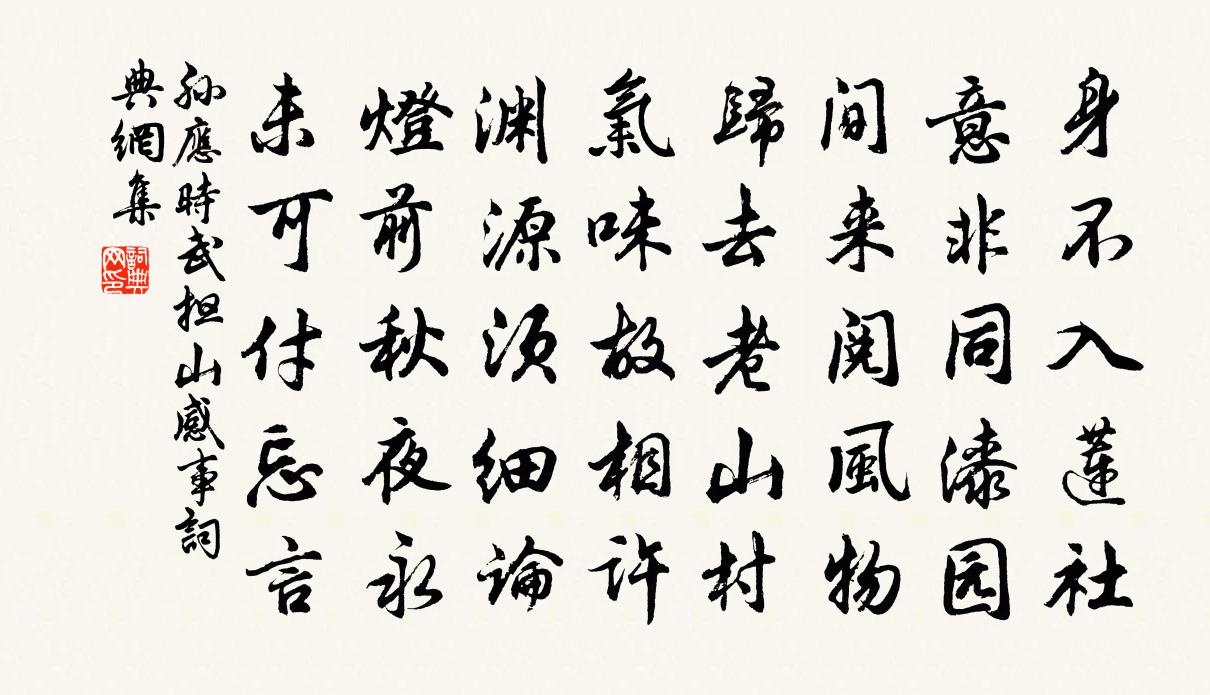 身不入蓮社
意非同漆园
间来阅風物
歸去老山村
氣味故相許
渊源须细論
燈前秋夜永
未可付忘言
孙應時武担山感事詞
典網集
詞典
网印